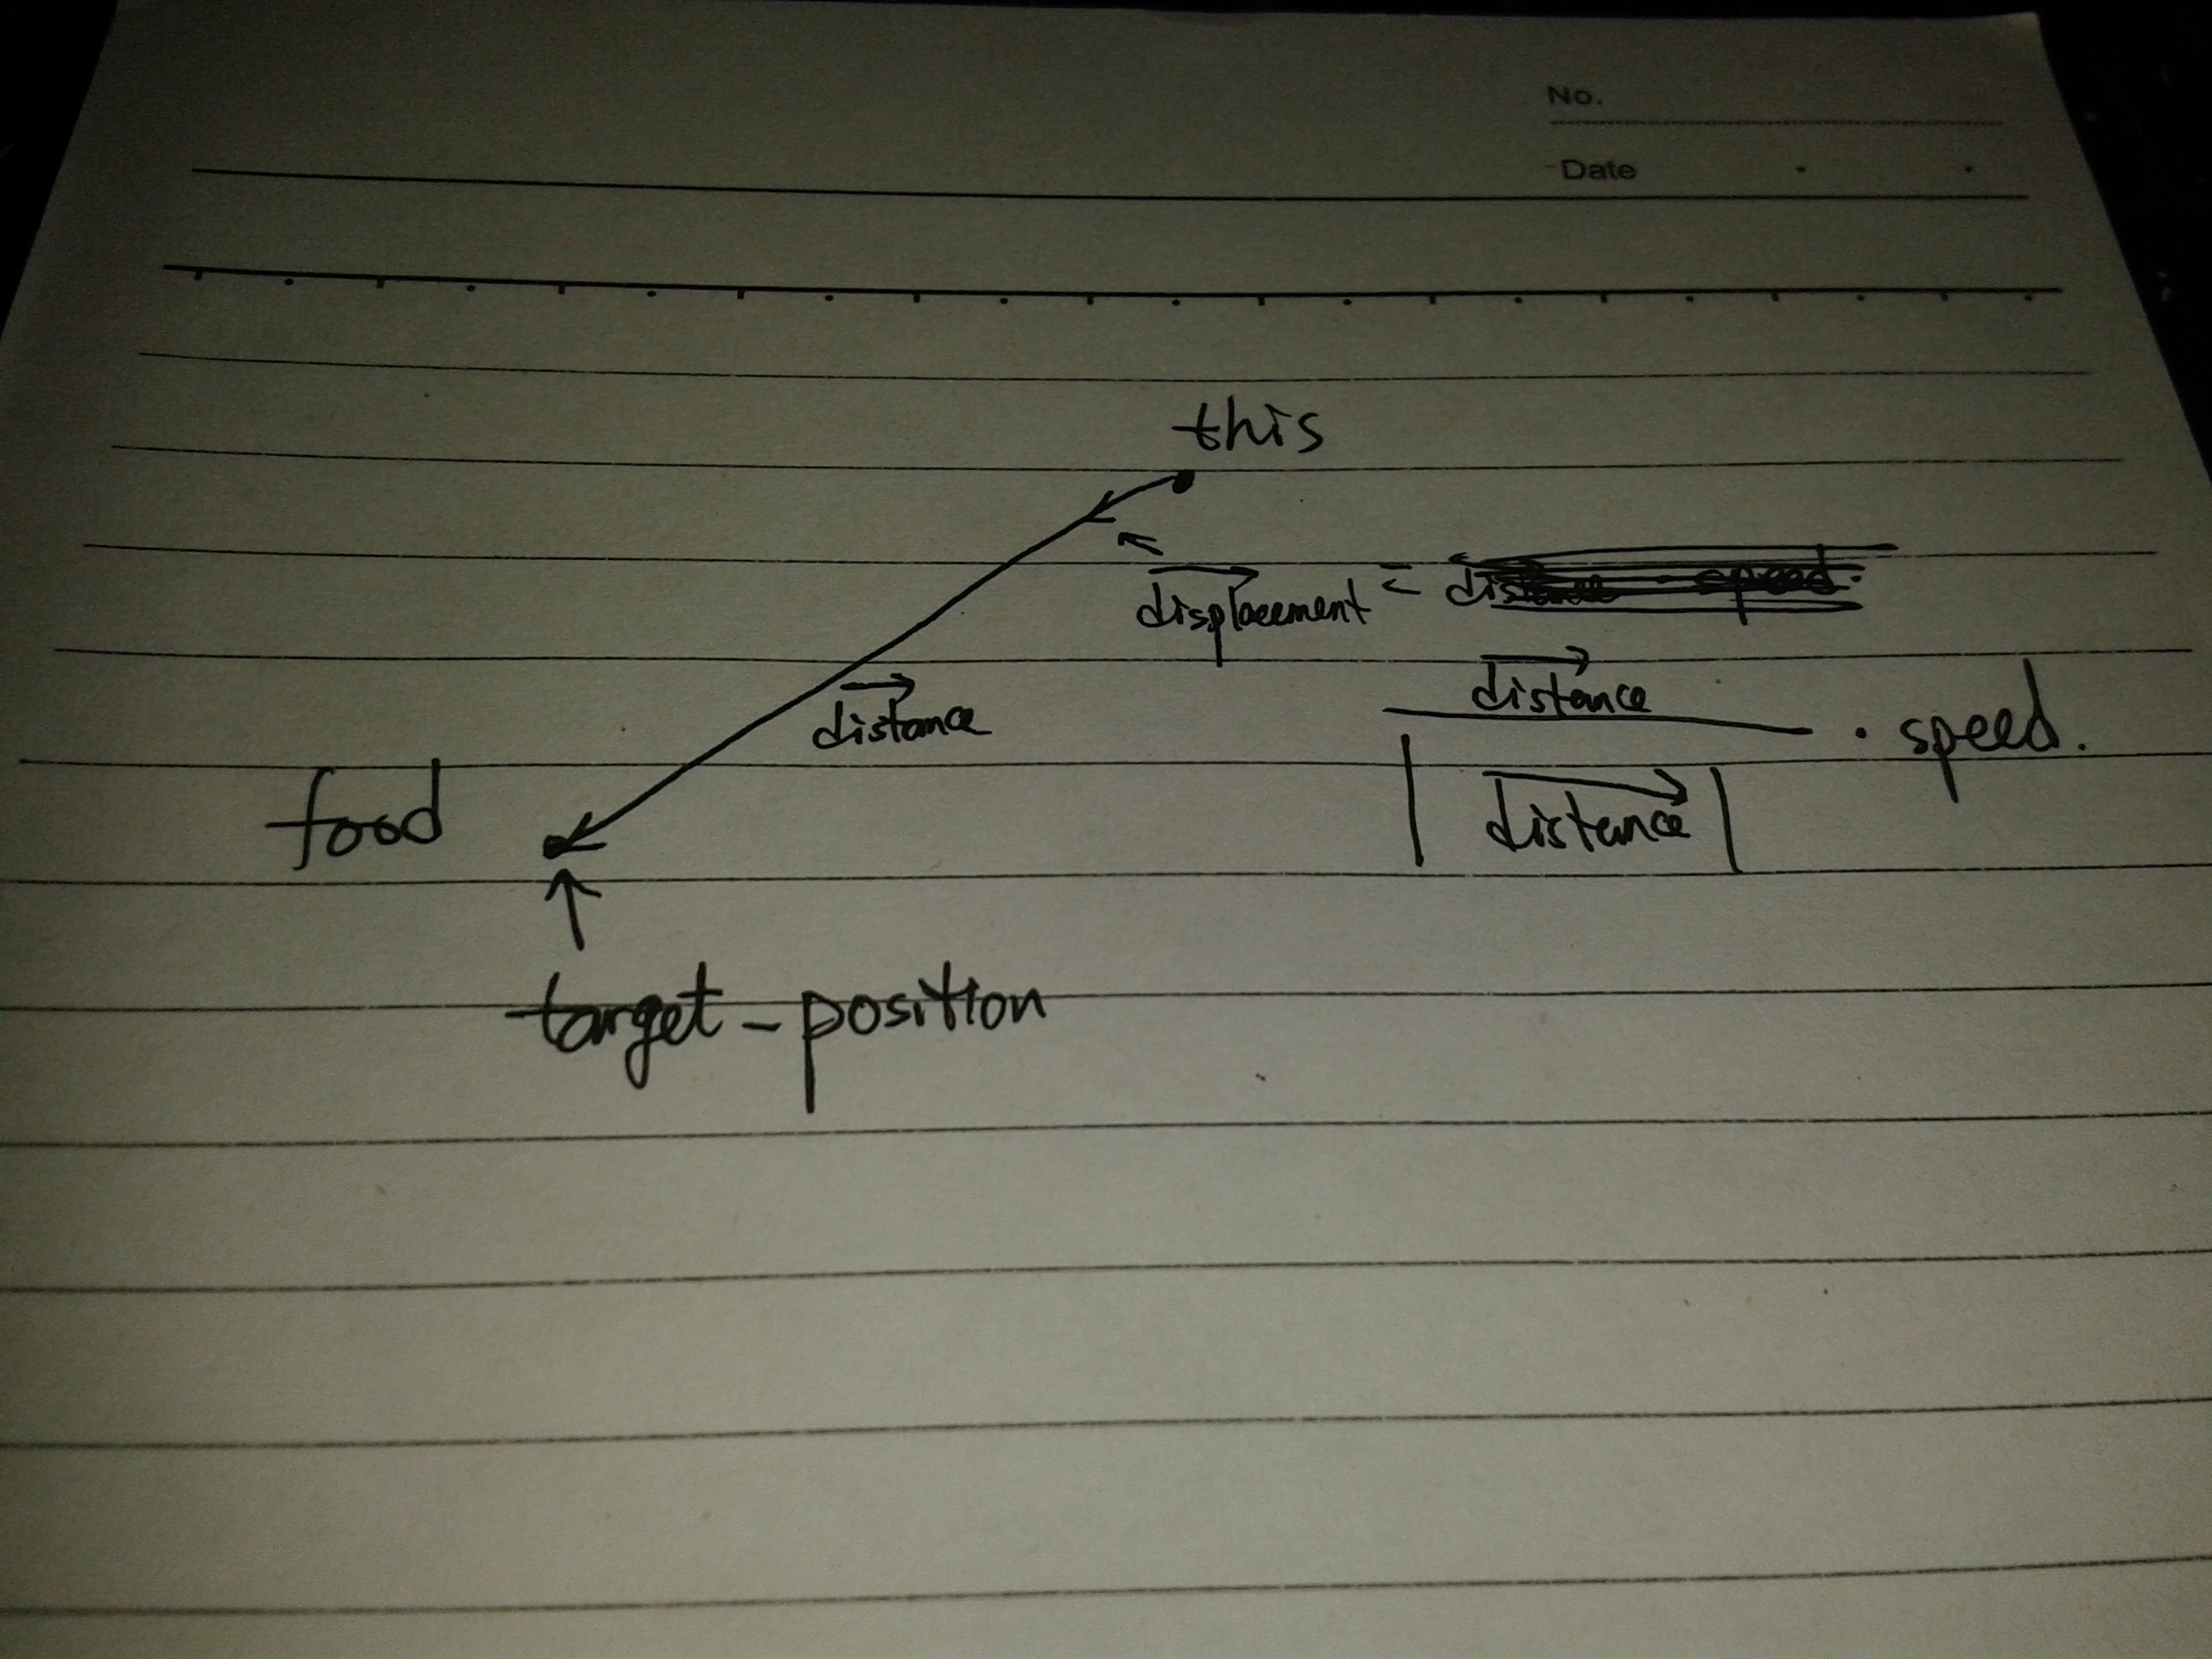 No.
Date
this
displacement = distance · speed.
distance
distance
· speed.
|distance|
food
target-position